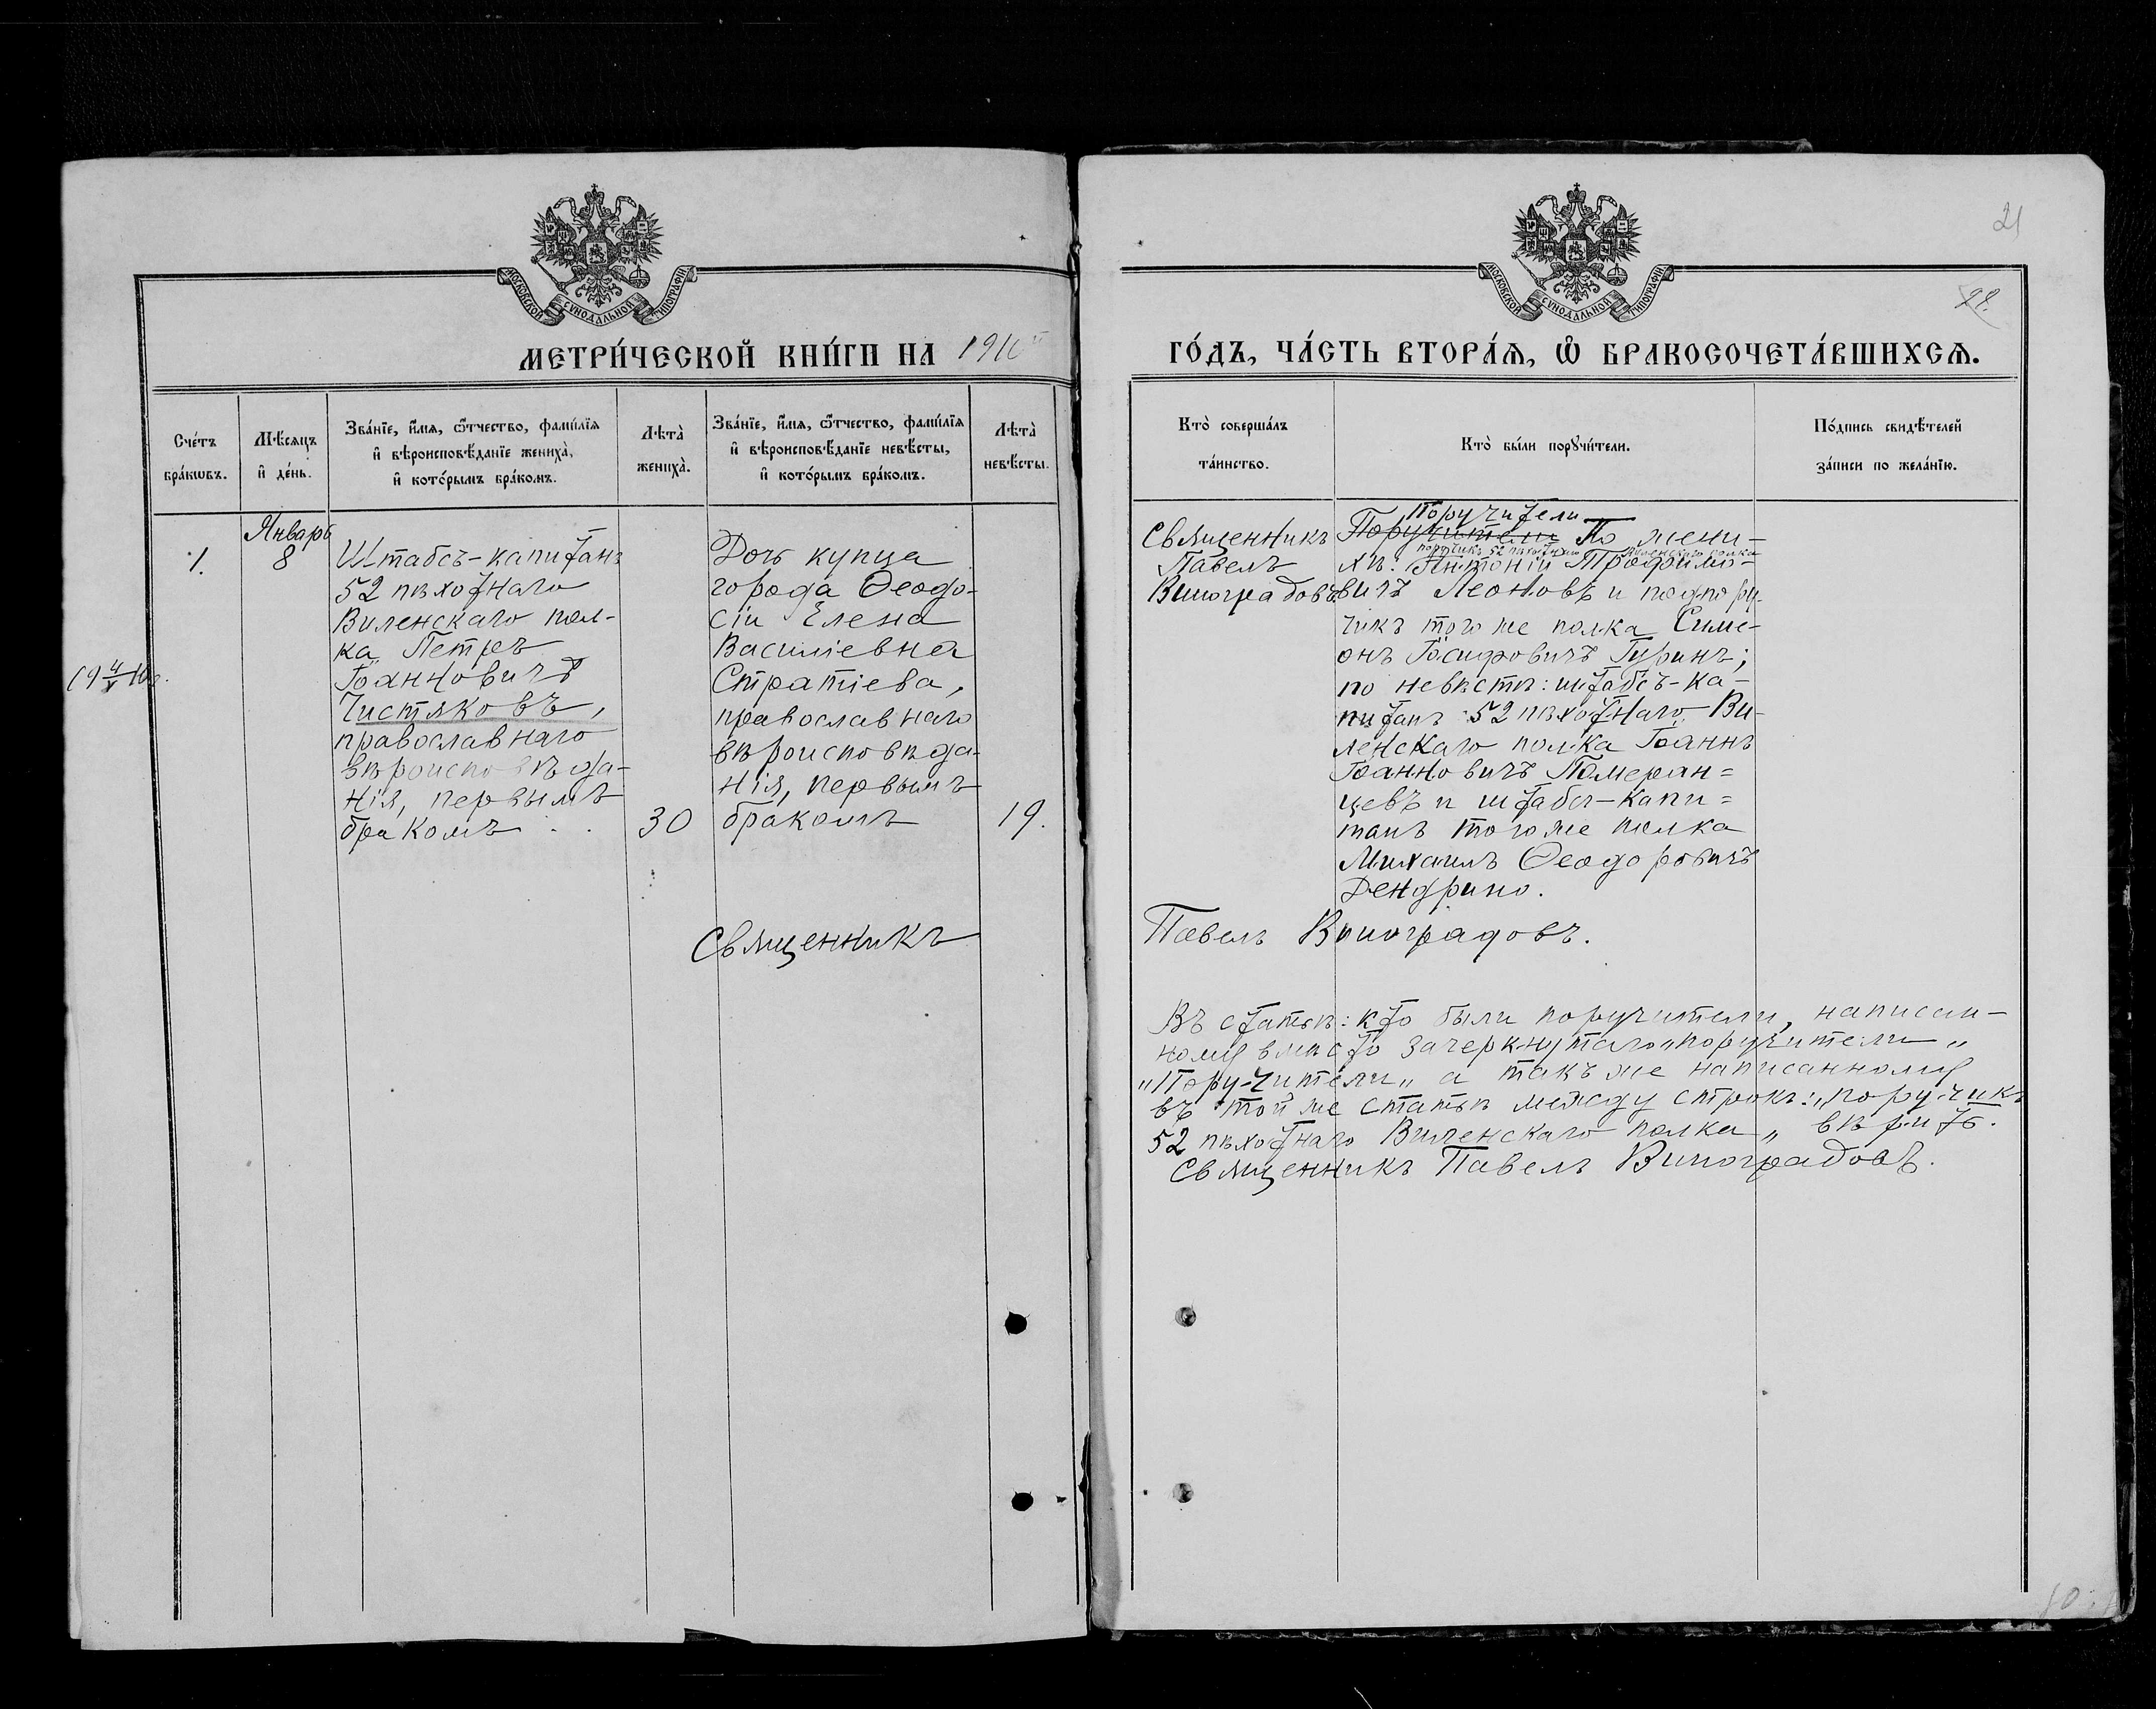 21
28.
МОСКОВСКОЙ СУНОДАЛЬНОЙ ТИПОГРАФІИ
МОСКОВСКОЙ СУНОДАЛЬНОЙ ТИПОГРАФІИ
МЕТРИ́ЧЕСКОЙ КНИ́ГИ НА 1910
ГО́ДЪ, ЧА́СТЬ ВТОРА́Я, Ѽ БРАКОСОЧЕТА́ВШИХСЯ.
Сче́тъ бра́кωвъ.
Мѣ́сяцъ и҆ де́нь.
Зва́нїе, и҆́мя, ѻ҆́тчество, фами́лїя
и҆ вѣроисповѣ́данїе жениха̀,
и҆ кото́рымъ бра́комъ.
Лѣта̀ жениха̀.
Зва́нїе, и҆́мя, ѻ҆́тчество, фами́лїя
и҆ вѣроисповѣ́данїе невѣ́сты,
и҆ кото́рымъ бра́комъ.
Лѣта̀ невѣ́сты.
Кто̀ соверша́лъ
та́инство.
Кто̀ бы́ли порꙋчи́тели.
По́дпись свидѣ́телей
за́писи по жела́нїю.
1.
Январь
8
Штабсъ-капитанъ
52 пѣхотнаго
Виленскаго пол-
ка Петръ
Іоанновичъ
Чистяковъ,
православнаго
вѣроисповѣда-
нія, первымъ
бракомъ
30
Дочь купца
города Ѳеодо-
сіи Елена
Василіевна
Стратіева,
православнаго
вѣроисповѣда-
нія, первымъ
бракомъ
19.
Священникъ
Павелъ
Виноградовъ.
Поручители
Поручители По жени-
поручикъ 52 пѣхотнаго Виленскаго полка
хѣ: Антоній Трофимо-
вичъ Леоновъ и подпору-
чикъ того же полка Симе-
онъ Іосифовичъ Гуринъ;
по невѣстѣ: штабсъ-ка-
питанъ 52 пѣхотнаго Ви-
ленскаго полка Іоаннъ
Іоанновичъ Померан=
цевъ и штабсъ-капи=
танъ того же полка
Михаилъ Ѳеодоровичъ
Дендрино.
Священникъ Павелъ Виноградовъ.
Въ статьѣ: кто были поручители, написан-
ному вмѣсто зачеркнутаго „поручители„
„Поручители„ а такъ же написанному
въ той же статьѣ между строкъ: „поручикъ
52 пѣхотнаго Виленскаго полка„ вѣрить.
Священникъ Павелъ Виноградовъ.